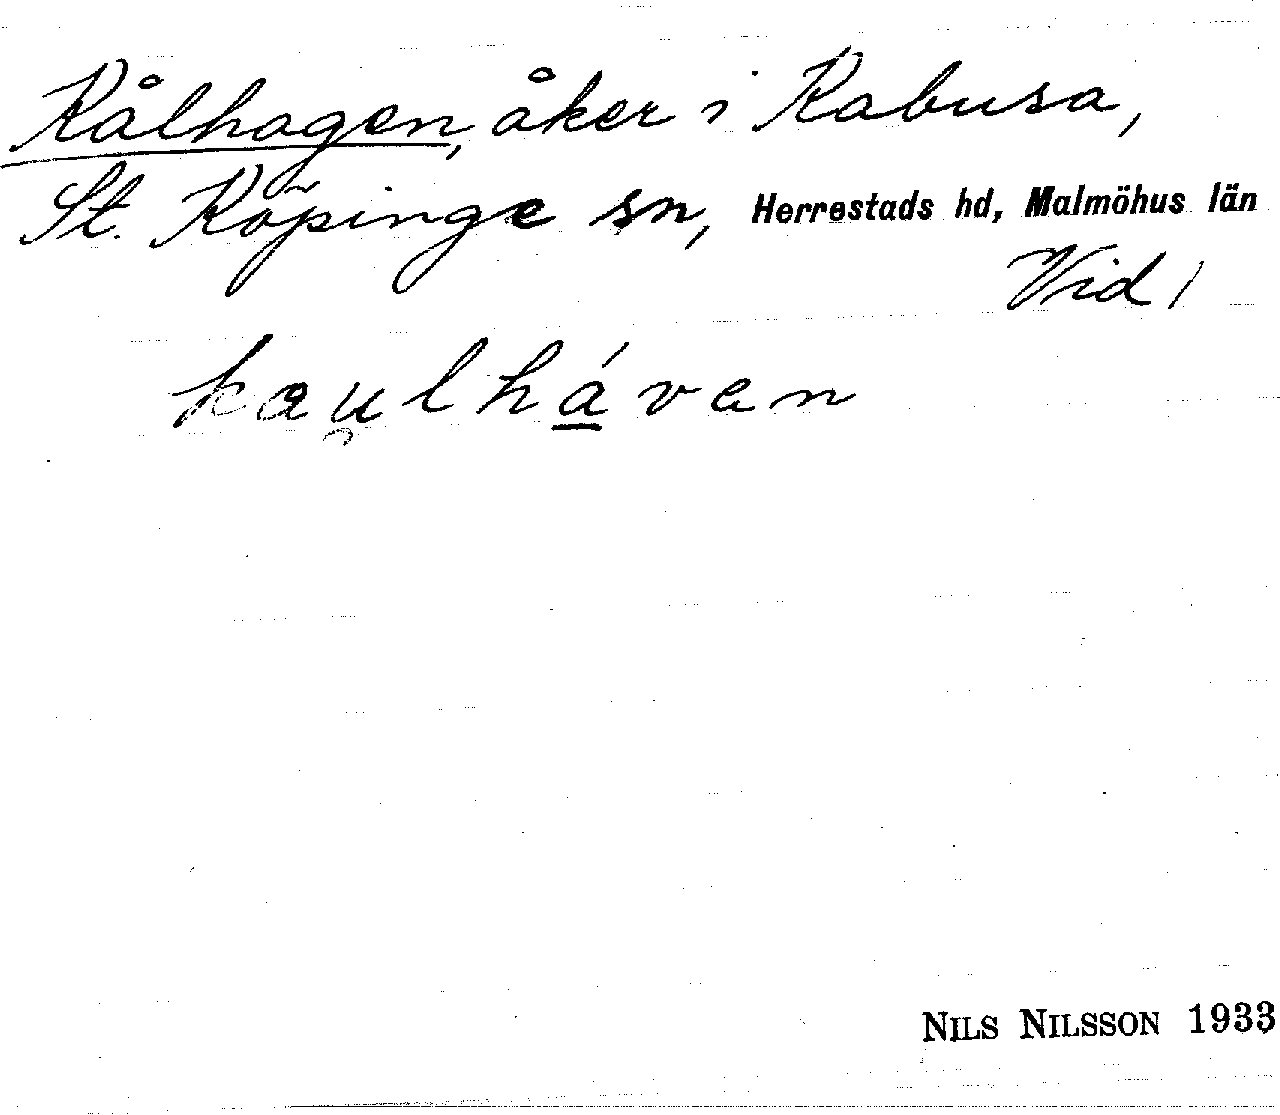 Kålhagen, åker i Kabusa,
St. Köpinge sn, Herrestads hd, Malmöhus län
Vid 1
kau̯lhá̲van
NILS NILSSON 1933